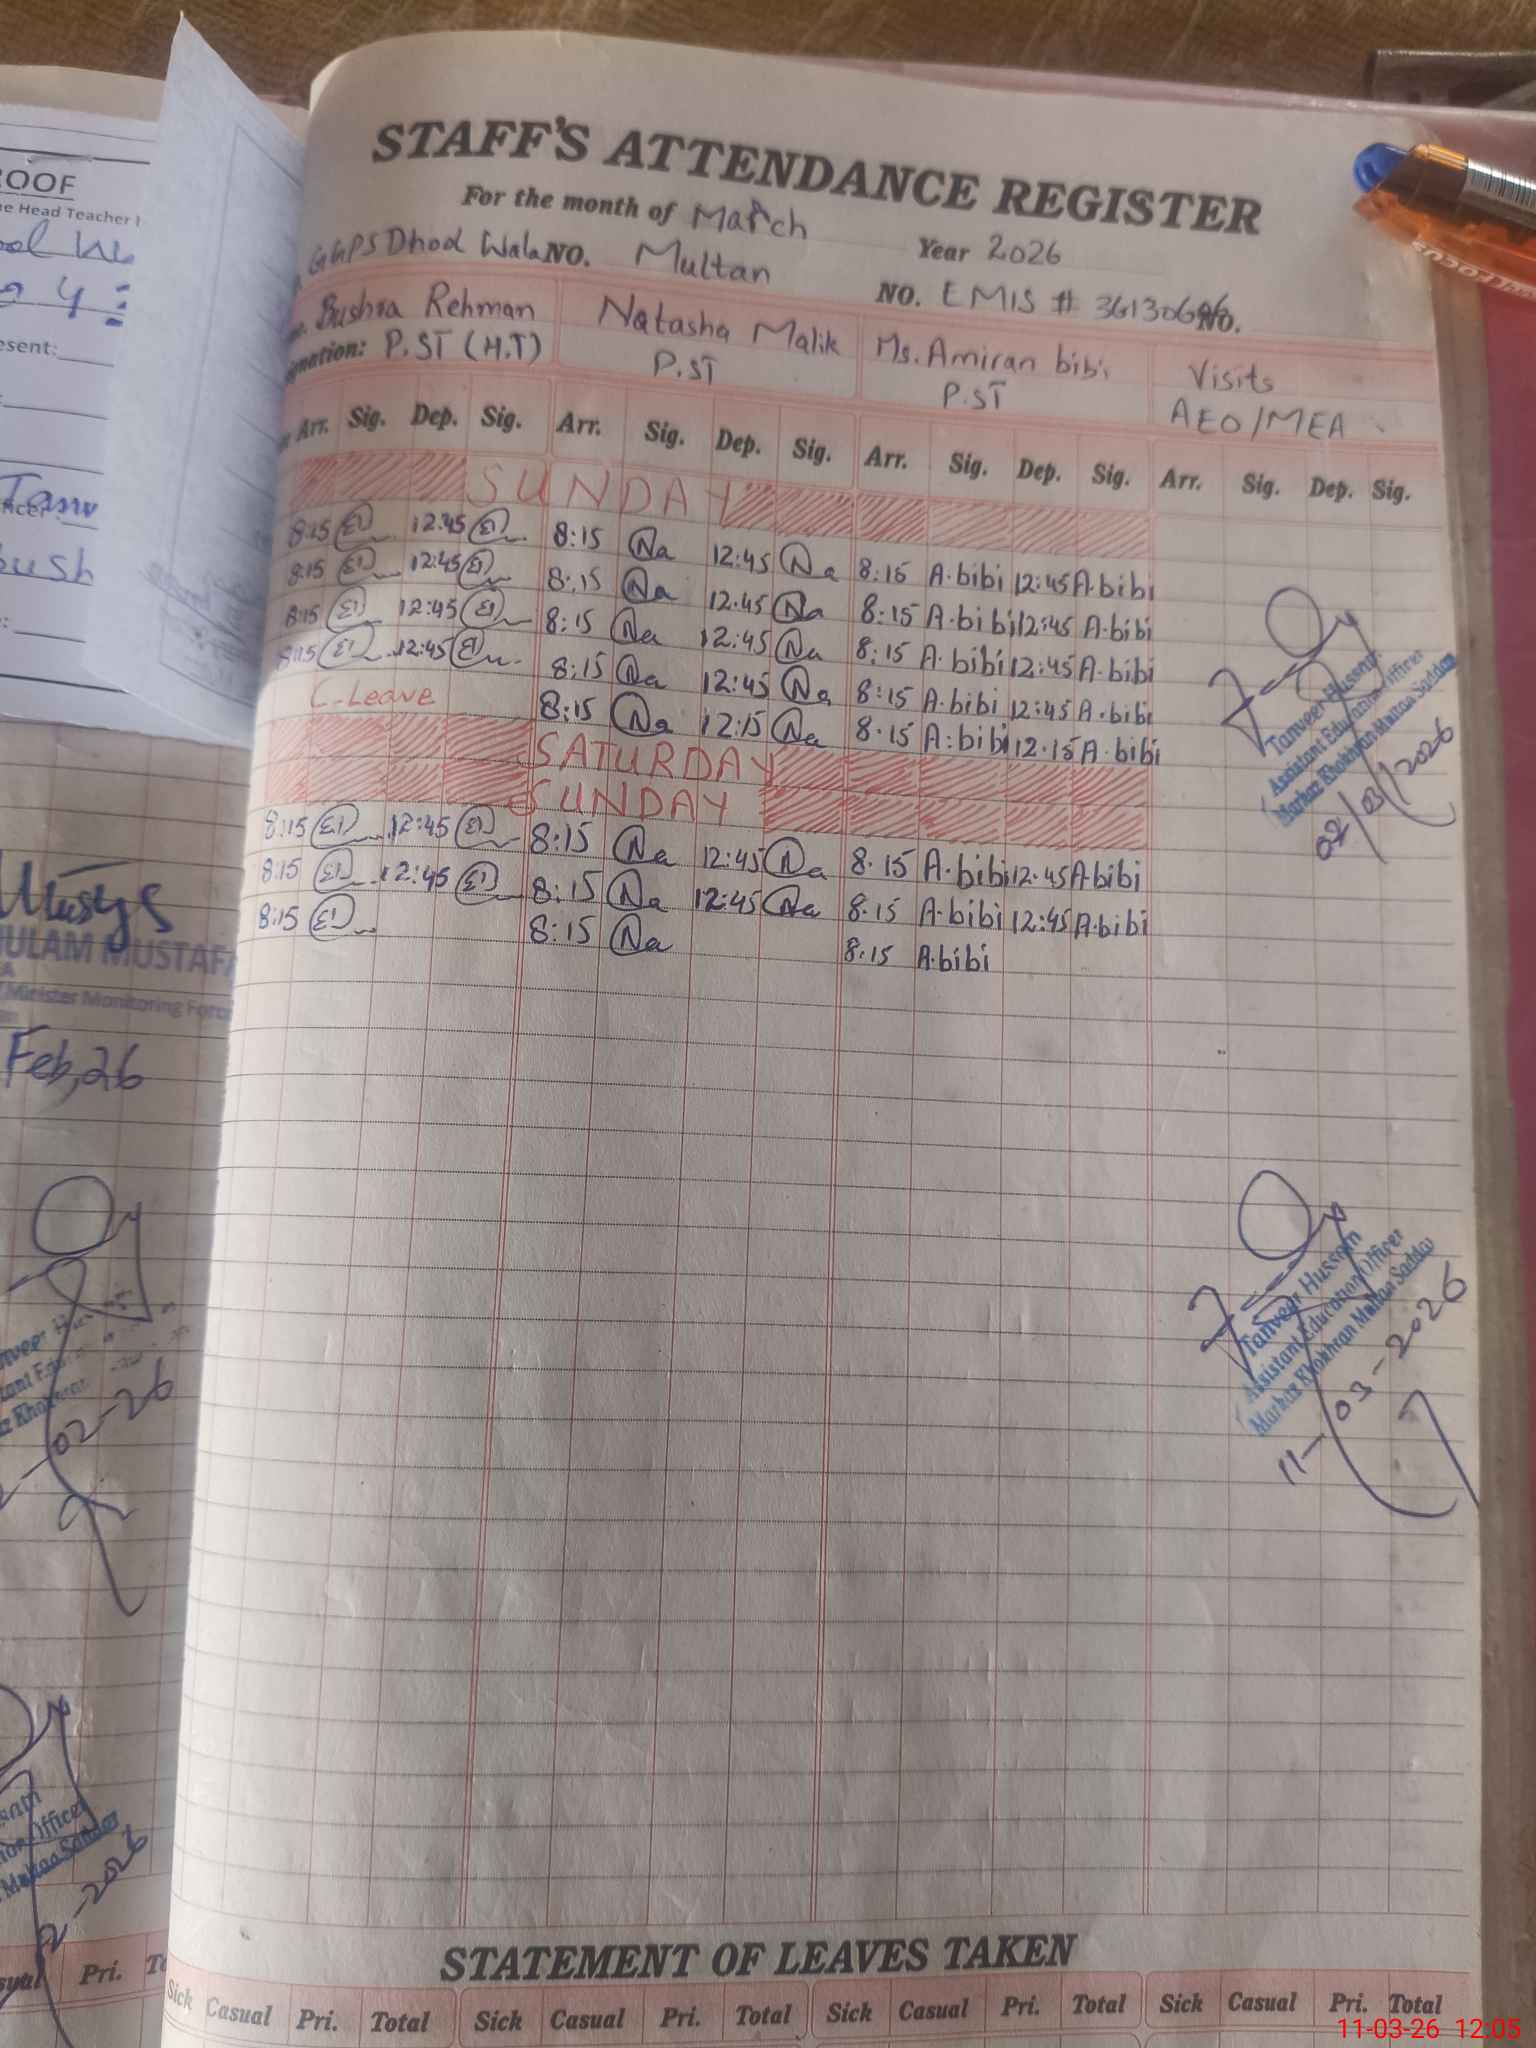 STAFF'S ATTENDANCE REGISTER
For the month of March Year 2026
GGPS Dhod Wala NO. Multan NO. EMIS # NO.
Bushra Rehman Natasha Malik Ms. Amiran bibi Visits
P.ST (H.T) P.ST P.ST AEO/MEA
Arr. Sig. Dep. Sig. Arr. Sig. Dep. Sig. Arr. Sig. Dep. Sig. Arr. Sig. Dep. Sig.
SUNDAY
8:15 12:45 8:15 Na 12:45 Na 8:15 A.bibi 12:45 A.bibi
8:15 12:45 8:15 Na 12:45 Na 8:15 A.bibi 12:45 A.bibi
8:15 12:45 8:15 Na 12:45 Na 8:15 A.bibi 12:45 A.bibi
8:15 12:45 8:15 Na 12:45 Na 8:15 A.bibi 12:45 A.bibi
C-Leave 8:15 Na 12:15 Na 8:15 A.bibi 12:15 A.bibi
SATURDAY
SUNDAY
8:15 12:45 8:15 Na 12:45 Na 8:15 A.bibi 12:45 A.bibi
8:15 12:45 8:15 Na 12:45 Na 8:15 A.bibi 12:45 A.bibi
8:15 8:15 Na 8:15 A.bibi
Tanveer Hussain
Assistant Education Officer
Markaz Khokhran Multan Saddar
02/03/2026
Tanveer Hussain
Assistant Education Officer
Markaz Khokhran Multan Saddar
11-03-2026
STATEMENT OF LEAVES TAKEN
Sick Casual Pri. Total Sick Casual Pri. Total Sick Casual Pri. Total Sick Casual Pri. Total
11-03-26 12:05
ROOF
Head Teacher
MUSTAFA
Minister Monitoring
Feb, 26
02-26
Officer
Pri.